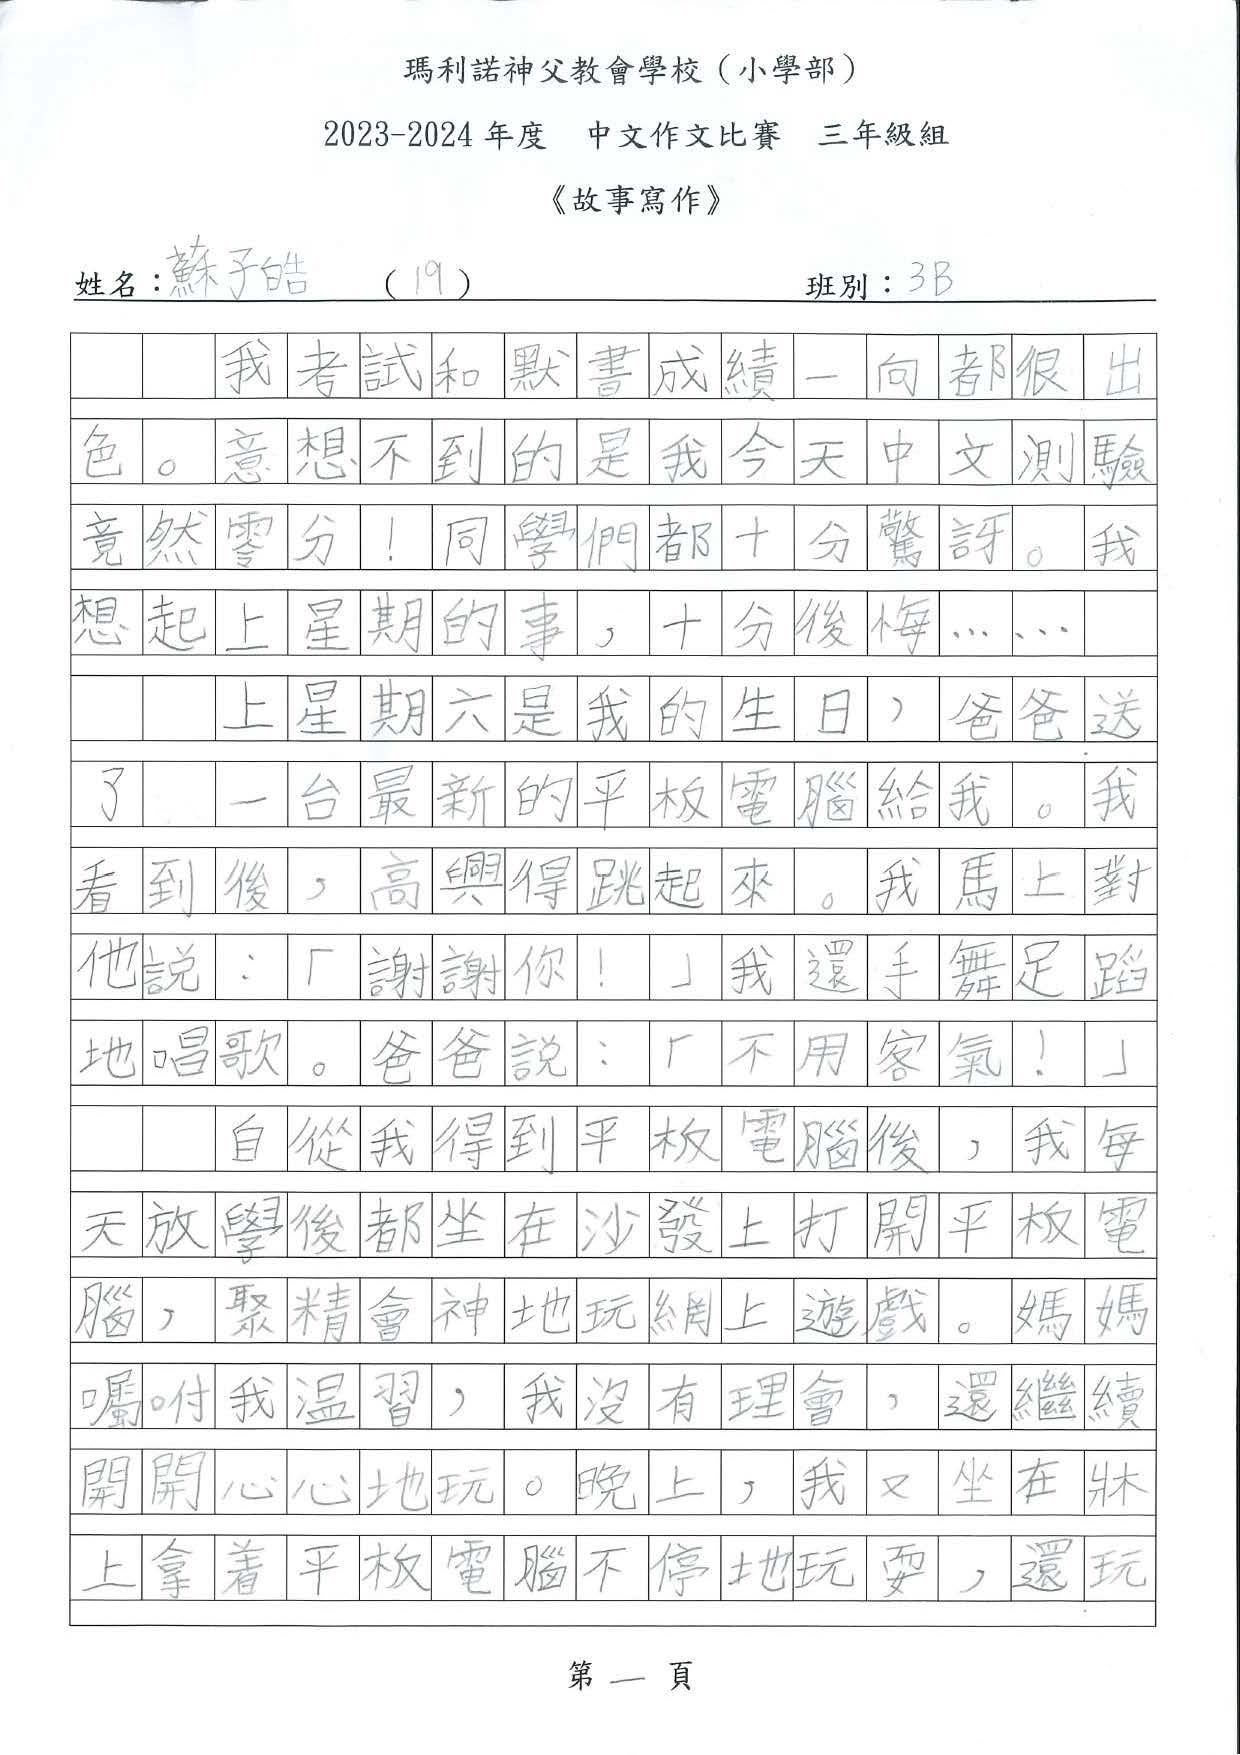 瑪利諾神父教會學校（小學部）
2023-2024 年度　中文作文比賽　三年級組
《故事寫作》
姓名：蘇子皓　（19）　班別：3B
我考試和默書成績一向都很出
色。意想不到的是我今天中文測驗
竟然零分！同學們都十分驚訝。我
想起上星期的事，十分後悔……
上星期六是我的生日，爸爸送
了　一台最新的平板電腦給我。我
看到後，高興得跳起來。我馬上對
他說：「謝謝你！」我還手舞足蹈
地唱歌。爸爸說：「不用客氣！」
自從我得到平板電腦後，我每
天放學後都坐在沙發上打開平板電
腦，聚精會神地玩網上遊戲。媽媽
囑咐我温習，我沒有理會，還繼續
開開心心地玩。晚上，我又坐在牀
上拿着平板電腦不停地玩耍，還玩
第一頁